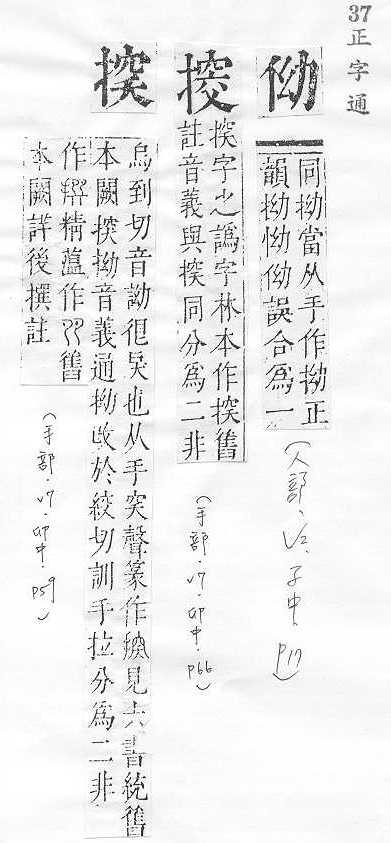 37 正字通
㑃
同拗當从手作拗正
韻拗怮㑃誤合為一
(人部.V2.子中.p17)
字之譌字林本作揬舊
註音義與揬同分為二非
(手部.V7.卯中.p66)
揬
烏到切音詏很戾也从手突聲篆作見六書統舊
本闕揬拗音義通拗改於絞切訓手拉分為二非
作精蘊作舊
本闕詳後撰註
(手部.V7.卯中.p59)